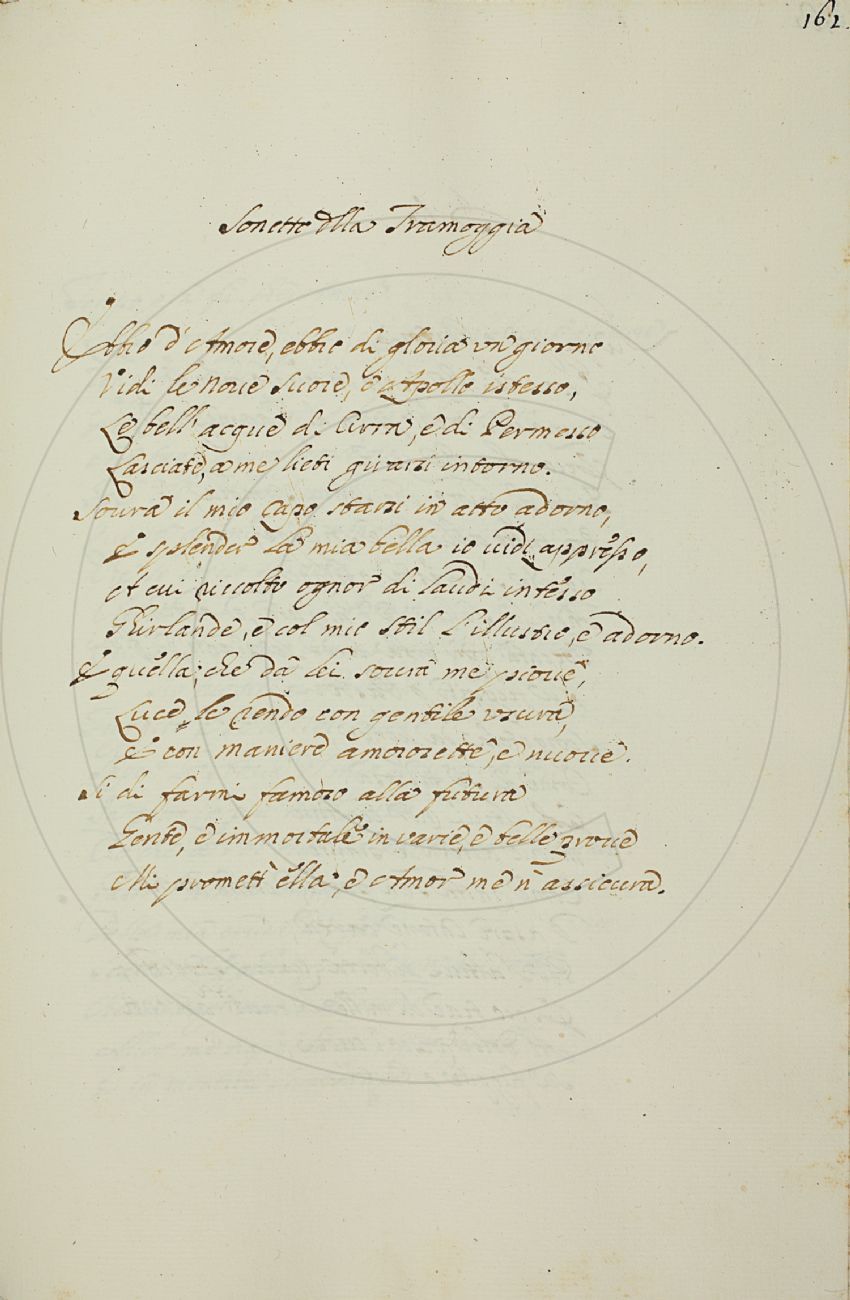 162.
Sonetto dlla Tramoggia
Ebbro d'Amore, ebbro di gloria un giorno
Vidi le nove Suore, e Apollo istesso,
Le bell'acque di Cirra, e di Permesso
Lasciate, a me lieti girarsi intorno.
Soura il mio Capo starsi in atto adorno,
E splender la mia bella io vidi appresso,
A cui raccolto ognor di laudi intesso
Ghirlande, e col mio stil l'illustro, e adorno.
E quella, che da lei soura me piove,
Luce, le rendo con gentile usura,
E con maniere amorosette, e nuove.
Sì di farmi famoso alla futura
Gente, e immortale in varie, e belle prove
Mi promett'ella, e Amor me n'assicura.